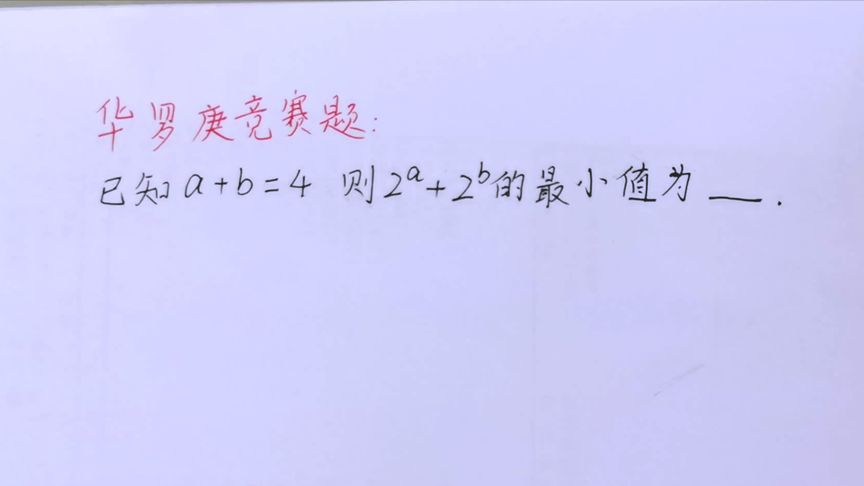 华罗庚竞赛题:
已知 a+b=4 则 2ᵃ+2ᵇ的最小值为 __.